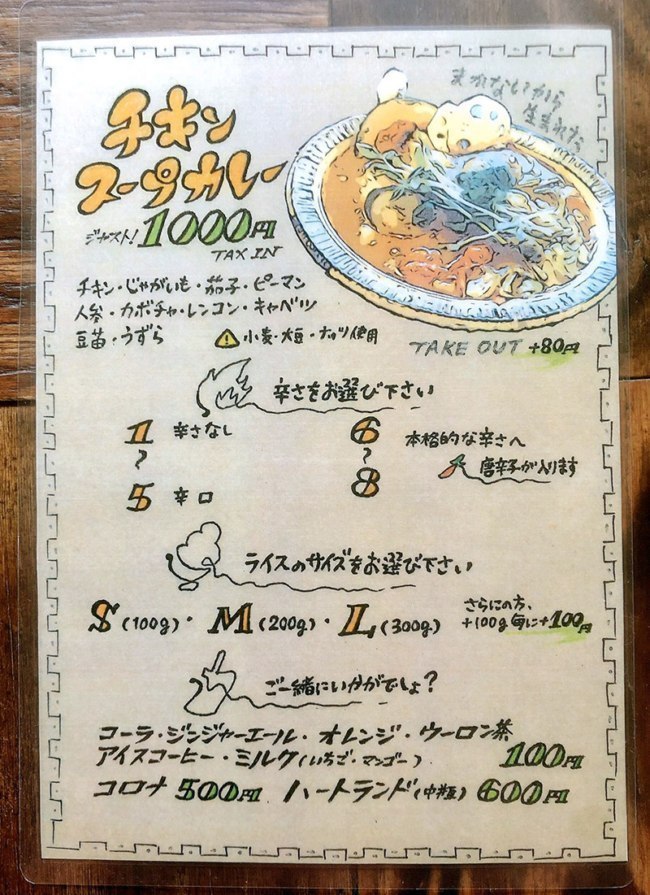 まかないから
生まれた
チキン
スープカレー
ジャスト! 1000円
TAX IN
チキン・じゃがいも・茄子・ピーマン
人参・カボチャ・レンコン・キャベツ
豆苗・うずら
小麦・大豆・ナッツ使用
TAKE OUT +80円
辛さをお選び下さい
1 辛さなし
〜
5 辛口
6
〜
8
本格的な辛さへ
唐辛子が入ります
ライスのサイズをお選び下さい
S(100g)・M(200g)・L(300g)
さらにの方、
+100g毎に+100円
ご一緒にいかがでしょ?
コーラ・ジンジャーエール・オレンジ・ウーロン茶
アイスコーヒー・ミルク(いちご・マンゴー) 100円
コロナ 500円 ハートランド(中瓶) 600円